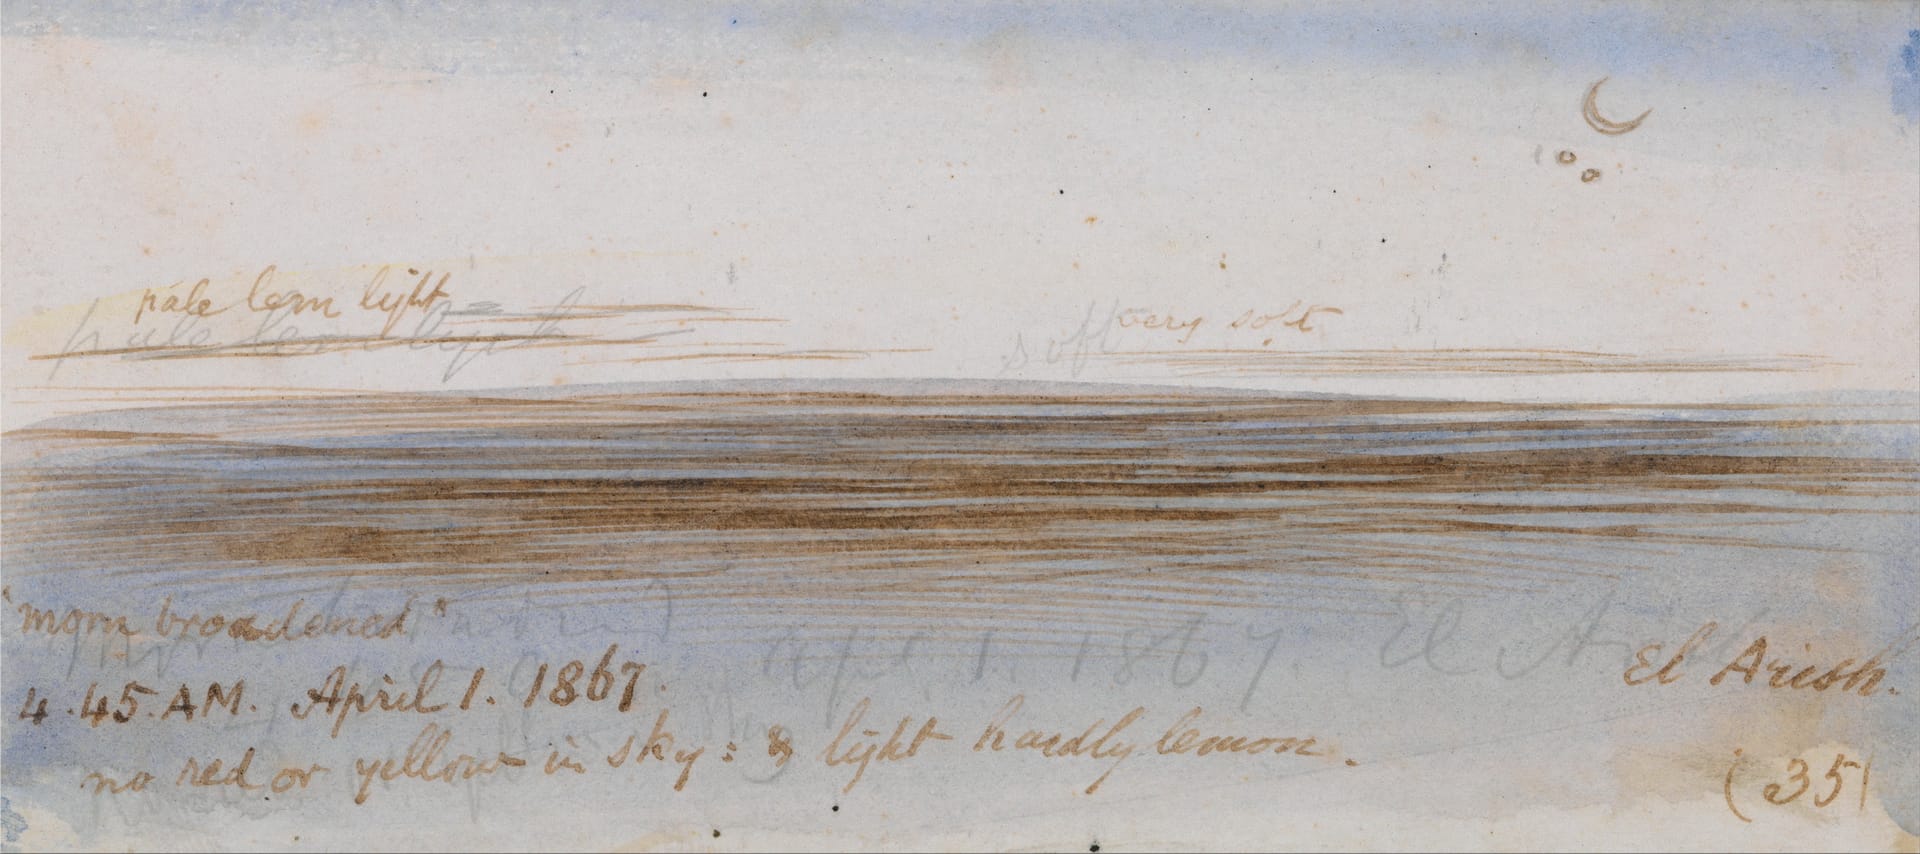 pale lem light
pale lem light
soft very soft
"morn broadened"
April 1. 1867. El Arish
El Arish.
4.45. AM. April 1. 1867.
no red or yellow in sky: & light hardly lemon.
(35)